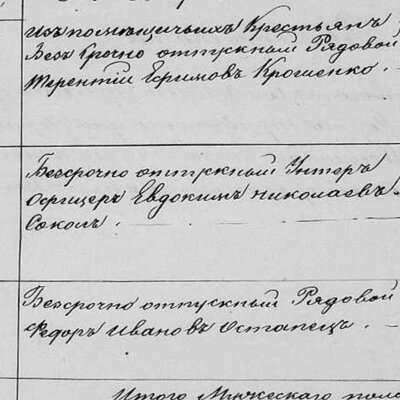 изъ помѣщичьихъ Крестьянъ
Безсрочно отпускный Рядовой
Терентій Ефимовъ Крошенко.
Безсрочно отпускный Унтеръ
Офицеръ Евдокимъ Николаевъ
Соколъ.
Безсрочно отпускный Рядовой
Федоръ Ивановъ Остапецъ.
Итого Мужескаго пола